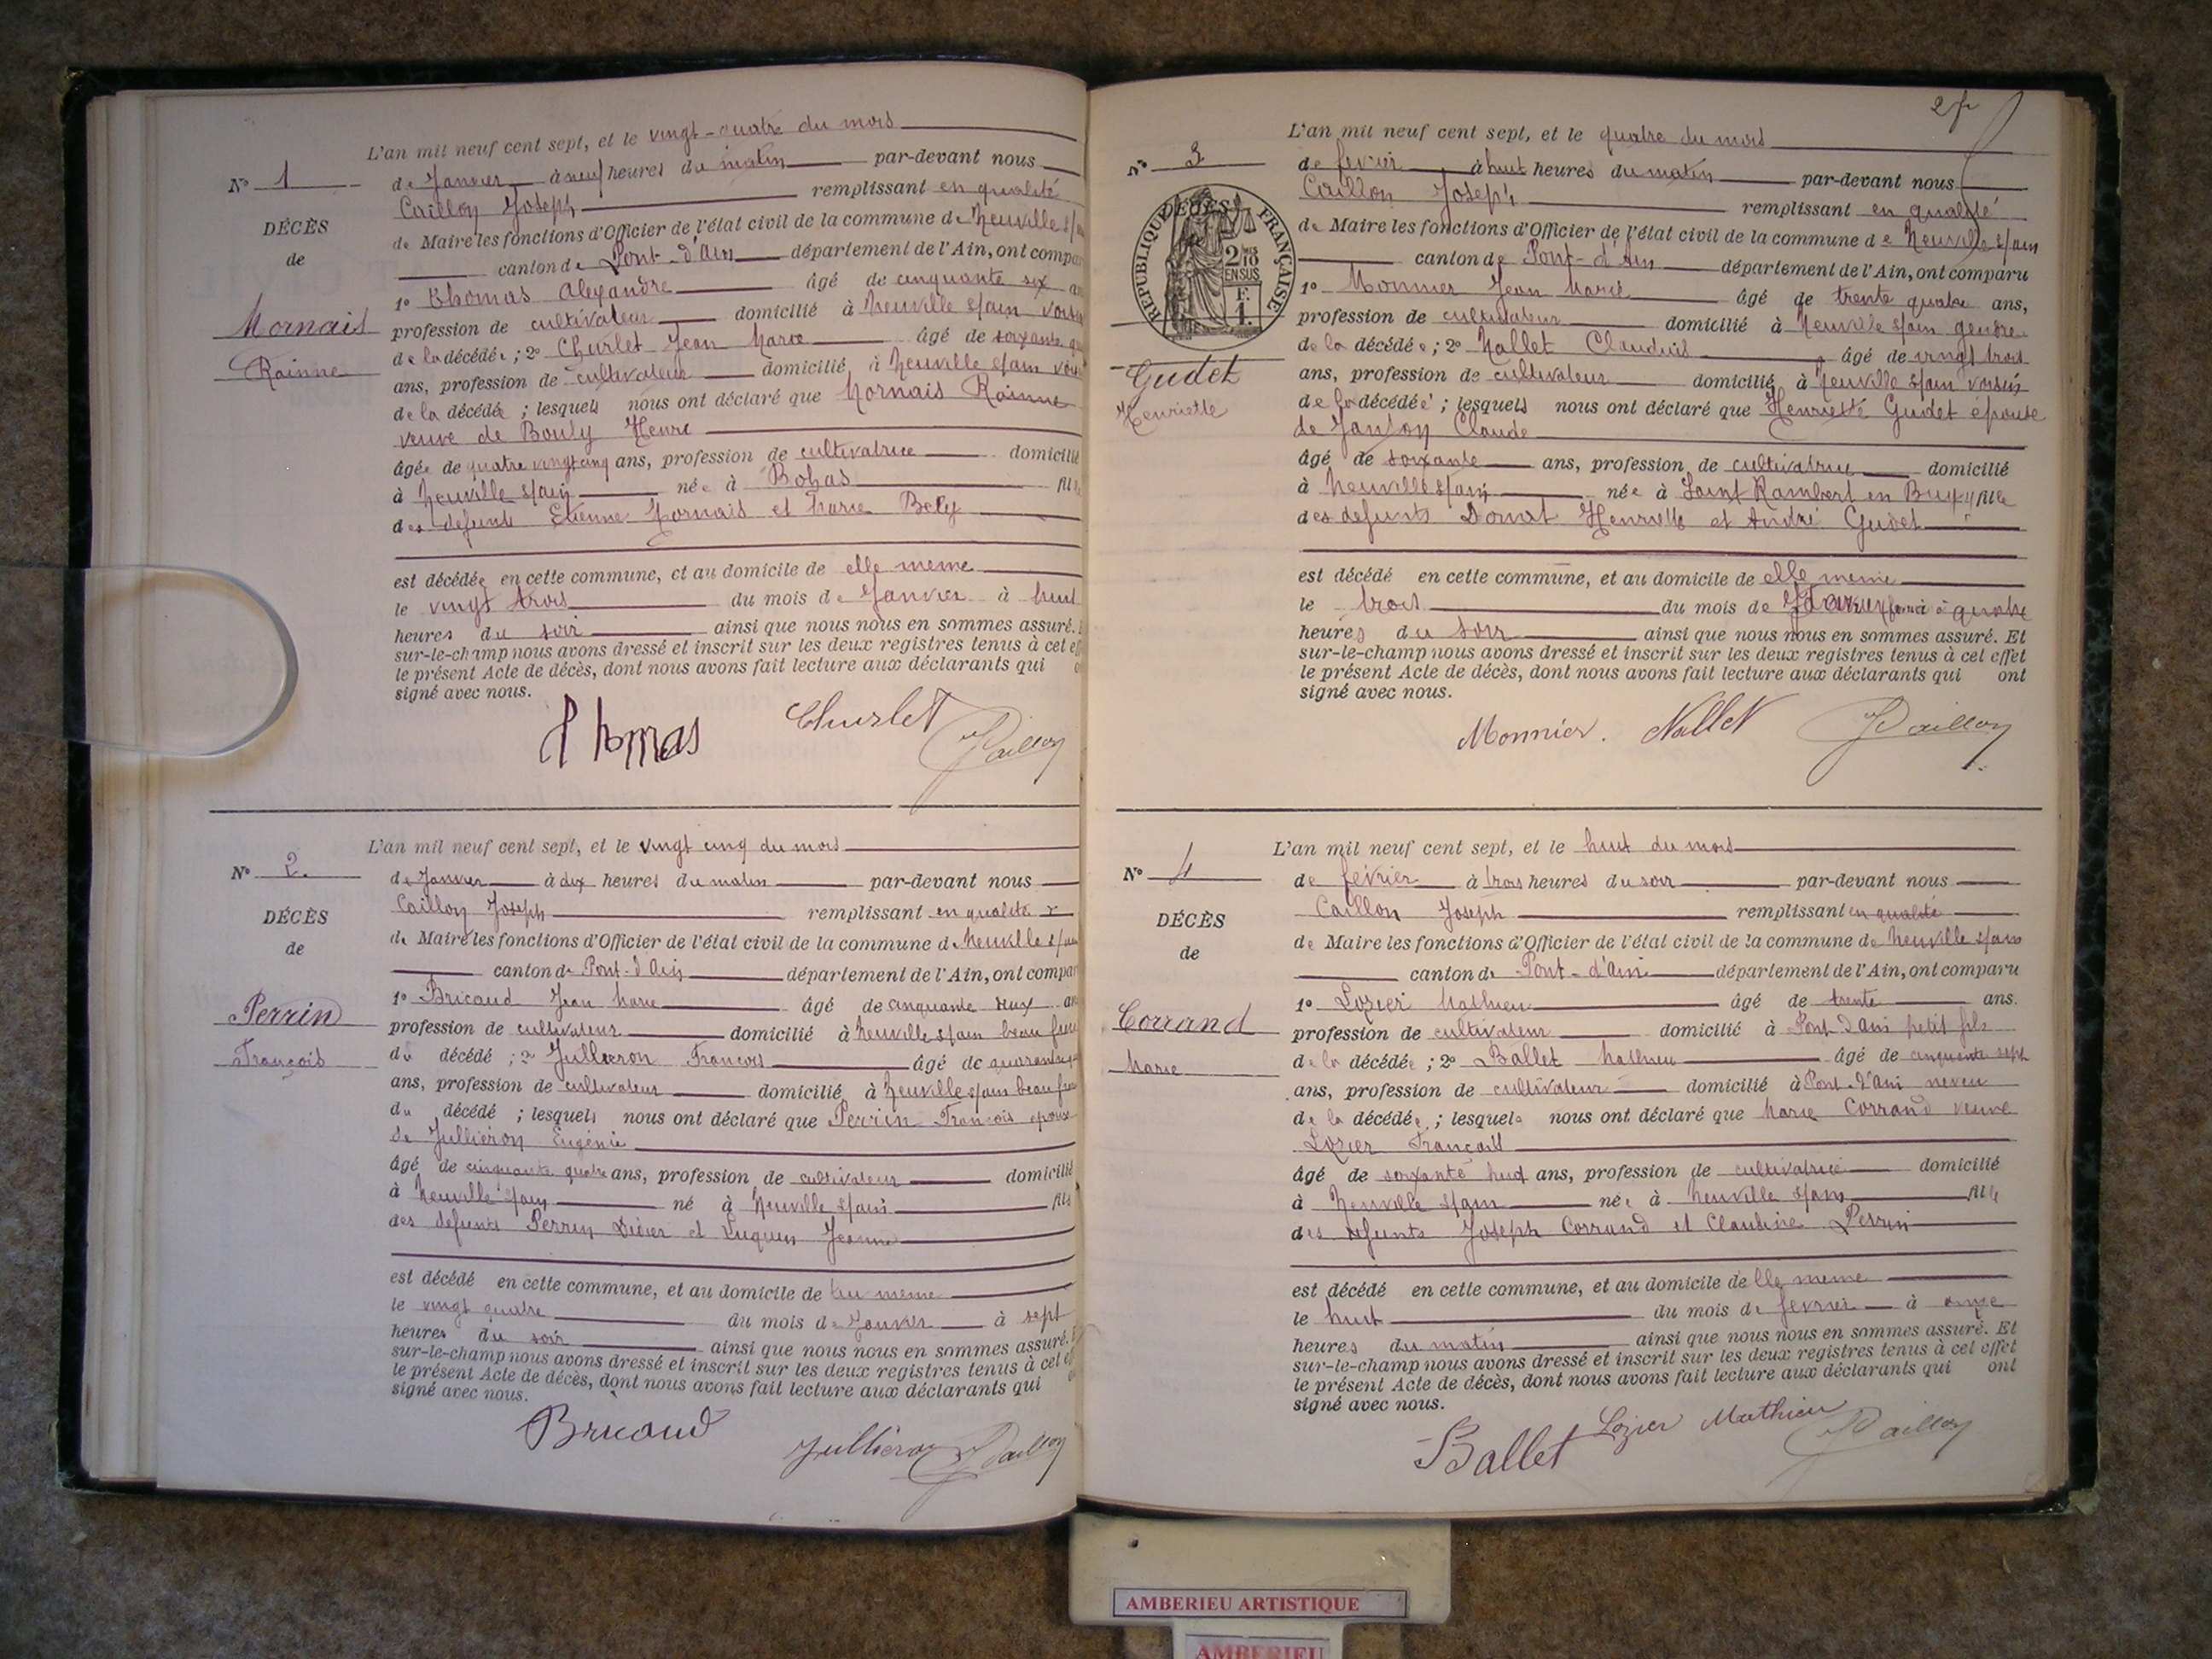 L'an mil neuf cent sept, et le vingt-quatre du mois
N° 1
de Janvier à neuf heures du matin par-devant nous
Caillon Joseph remplissant en qualité
DÉCÈS
de Maire les fonctions d'Officier de l'état civil de la commune de Neuville s/
de
canton de Pont-d'Ain département de l'Ain, ont compa
1° Thomas Alexandre âgé de cinquante six
Mornais
profession de cultivateur domicilié à Neuville s/ain voisin
de la décédée ; 2° Churlet Jean Marie âgé de soixante
Rainne
ans, profession de cultivateur domicilié à Neuville s/ain
de la décédée ; lesquels nous ont déclaré que Mornais Rainne
veuve de Bouly Henri
âgée de quatre vingt cinq ans, profession de cultivatrice domicilié
à Neuville s/ain née à Bohas fille
des defunts Etienne Mornais et Marie Bely
est décédée en cette commune, et au domicile de elle meme
le vingt trois du mois de Janvier à huit
heures du soir ainsi que nous nous en sommes assuré.
sur-le-champ nous avons dressé et inscrit sur les deux registres tenus à cet
le présent Acte de décès, dont nous avons fait lecture aux déclarants qui
signé avec nous.
Thomas Churlet JCaillon
L'an mil neuf cent sept, et le vingt cinq du mois
N° 2.
de Janvier à dix heures du matin par-devant nous
Caillon Joseph remplissant en qualité
DÉCÈS
de Maire les fonctions d'Officier de l'état civil de la commune de Neuville s/
de
canton de Pont-d'Ain département de l'Ain, ont compar
1° Bricaud Jean Marie âgé de cinquante deux
Perrin
profession de cultivateur domicilié à Neuville s/ain beau frere
du décédé ; 2° Jullieron Francois âgé de
François
ans, profession de cultivateur domicilié à Neuville s/ain beau frere
du décédé ; lesquels nous ont déclaré que Perrin François époux
de Jullieron Eugénie
âgé de cinquante quatre ans, profession de cultivateur domicilié
à Neuville s/ain né à Neuville s/ain fils
des defunts Perrin Didier et Jeanne
est décédé en cette commune, et au domicile de lui meme
le vingt quatre du mois de Janvier à sept
heures du soir ainsi que nous nous en sommes assuré.
sur-le-champ nous avons dressé et inscrit sur les deux registres tenus à cet
le présent Acte de décès, dont nous avons fait lecture aux déclarants qui
signé avec nous.
Bricaud Jullieron JCaillon
L'an mil neuf cent sept, et le quatre du mois
N° 3
de fevrier à huit heures du matin par-devant nous
Caillon Joseph remplissant en qualité
DÉCÈS
RÉPUBLIQUE FRANÇAISE
2/10 EN SUS
de Maire les fonctions d'Officier de l'état civil de la commune de Neuville s/ain
canton de Pont-d'Ain département de l'Ain, ont comparu
1° Monnier Jean Marie âgé de trente quatre ans,
profession de cultivateur domicilié à Neuville s/ain gendre
de la décédée ; 2° Nallet Claudius âgé de vingt trois
Gudet
ans, profession de cultivateur domicilié à Neuville s/ain voisin
Henriette
de la décédée ; lesquels nous ont déclaré que Henriette Gudet épouse
de Janton Claude
âgé de soixante ans, profession de cultivatrice domicilié
à Neuville s/ain née à Saint Rambert en Bugey fille
des defunts Donat Henriette et André Gudet
est décédé en cette commune, et au domicile de elle meme
le trois du mois de à quatre
heures du soir ainsi que nous nous en sommes assuré. Et
sur-le-champ nous avons dressé et inscrit sur les deux registres tenus à cet effet
le présent Acte de décès, dont nous avons fait lecture aux déclarants qui ont
signé avec nous.
Monnier. Nallet JCaillon
L'an mil neuf cent sept, et le huit du mois
N° 4
de fevrier à trois heures du soir par-devant nous
Caillon Joseph remplissant en qualité
DÉCÈS
de Maire les fonctions d'Officier de l'état civil de la commune de Neuville s/ain
de
canton de Pont-d'ain département de l'Ain, ont comparu
1° Lozier Mathieu âgé de trente ans.
Corrand
profession de cultivateur domicilié à Pont d'ain petit fils
de la décédée ; 2° Ballet Mathieu âgé de cinquante sept
Marie
ans, profession de cultivateur domicilié à Pont-d'ain neveu
de la décédée ; lesquels nous ont déclaré que Marie Corrand veuve
Lozier Français
âgé de soixante huit ans, profession de cultivatrice domicilié
à Neuville s/ain née à Neuville s/ain fille
des defunts Joseph Corrand et Claudine Perrin
est décédé en cette commune, et au domicile de lle meme
le huit du mois de fevrier à onze
heures du matin ainsi que nous nous en sommes assuré. Et
sur-le-champ nous avons dressé et inscrit sur les deux registres tenus à cet effet
le présent Acte de décès, dont nous avons fait lecture aux déclarants qui ont
signé avec nous.
Ballet Lozier Mathieu JCaillon
AMBERIEU ARTISTIQUE
AMBERIEU